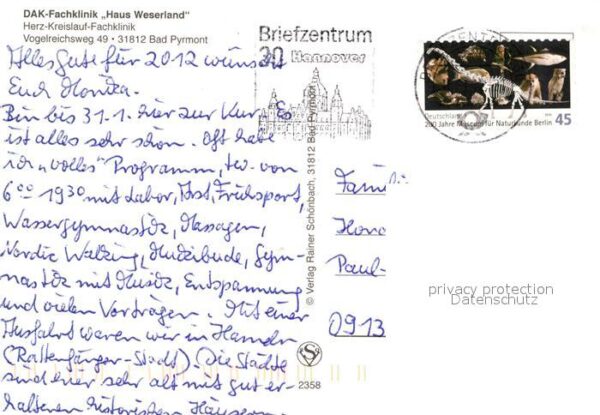 DAK-Fachklinik „Haus Weserland"
Herz-Kreislauf-Fachklinik
Vogelreichsweg 49 • 31812 Bad Pyrmont
Alles Gute für 2012 wünscht
Euch Monika.
Bin bis 31.1. hier zur Kur. Es
ist alles sehr schön. Oft habe
ich „volles" Programm, von
6⁰⁰ 19³⁰ mit Labor, Frühsport,
Wassergymnastik, Massagen,
Nordic Walking, Gym-
nastik mit Musik, Entspannung
und vielen Vorträgen. Mit einer
Ausfahrt waren wir in Hameln
(Rattenfänger-Stadt) Die Städte
sind hier sehr alt mit gut er-
haltenen historischen Häusern
Briefzentrum
30 Hannover
© Verlag Rainer Schönbach, 31812 Bad Pyrmont
2358
Deutschland
200 Jahre Museum für Naturkunde Berlin 45
Fami
Paul-
0913
privacy protection
Datenschutz